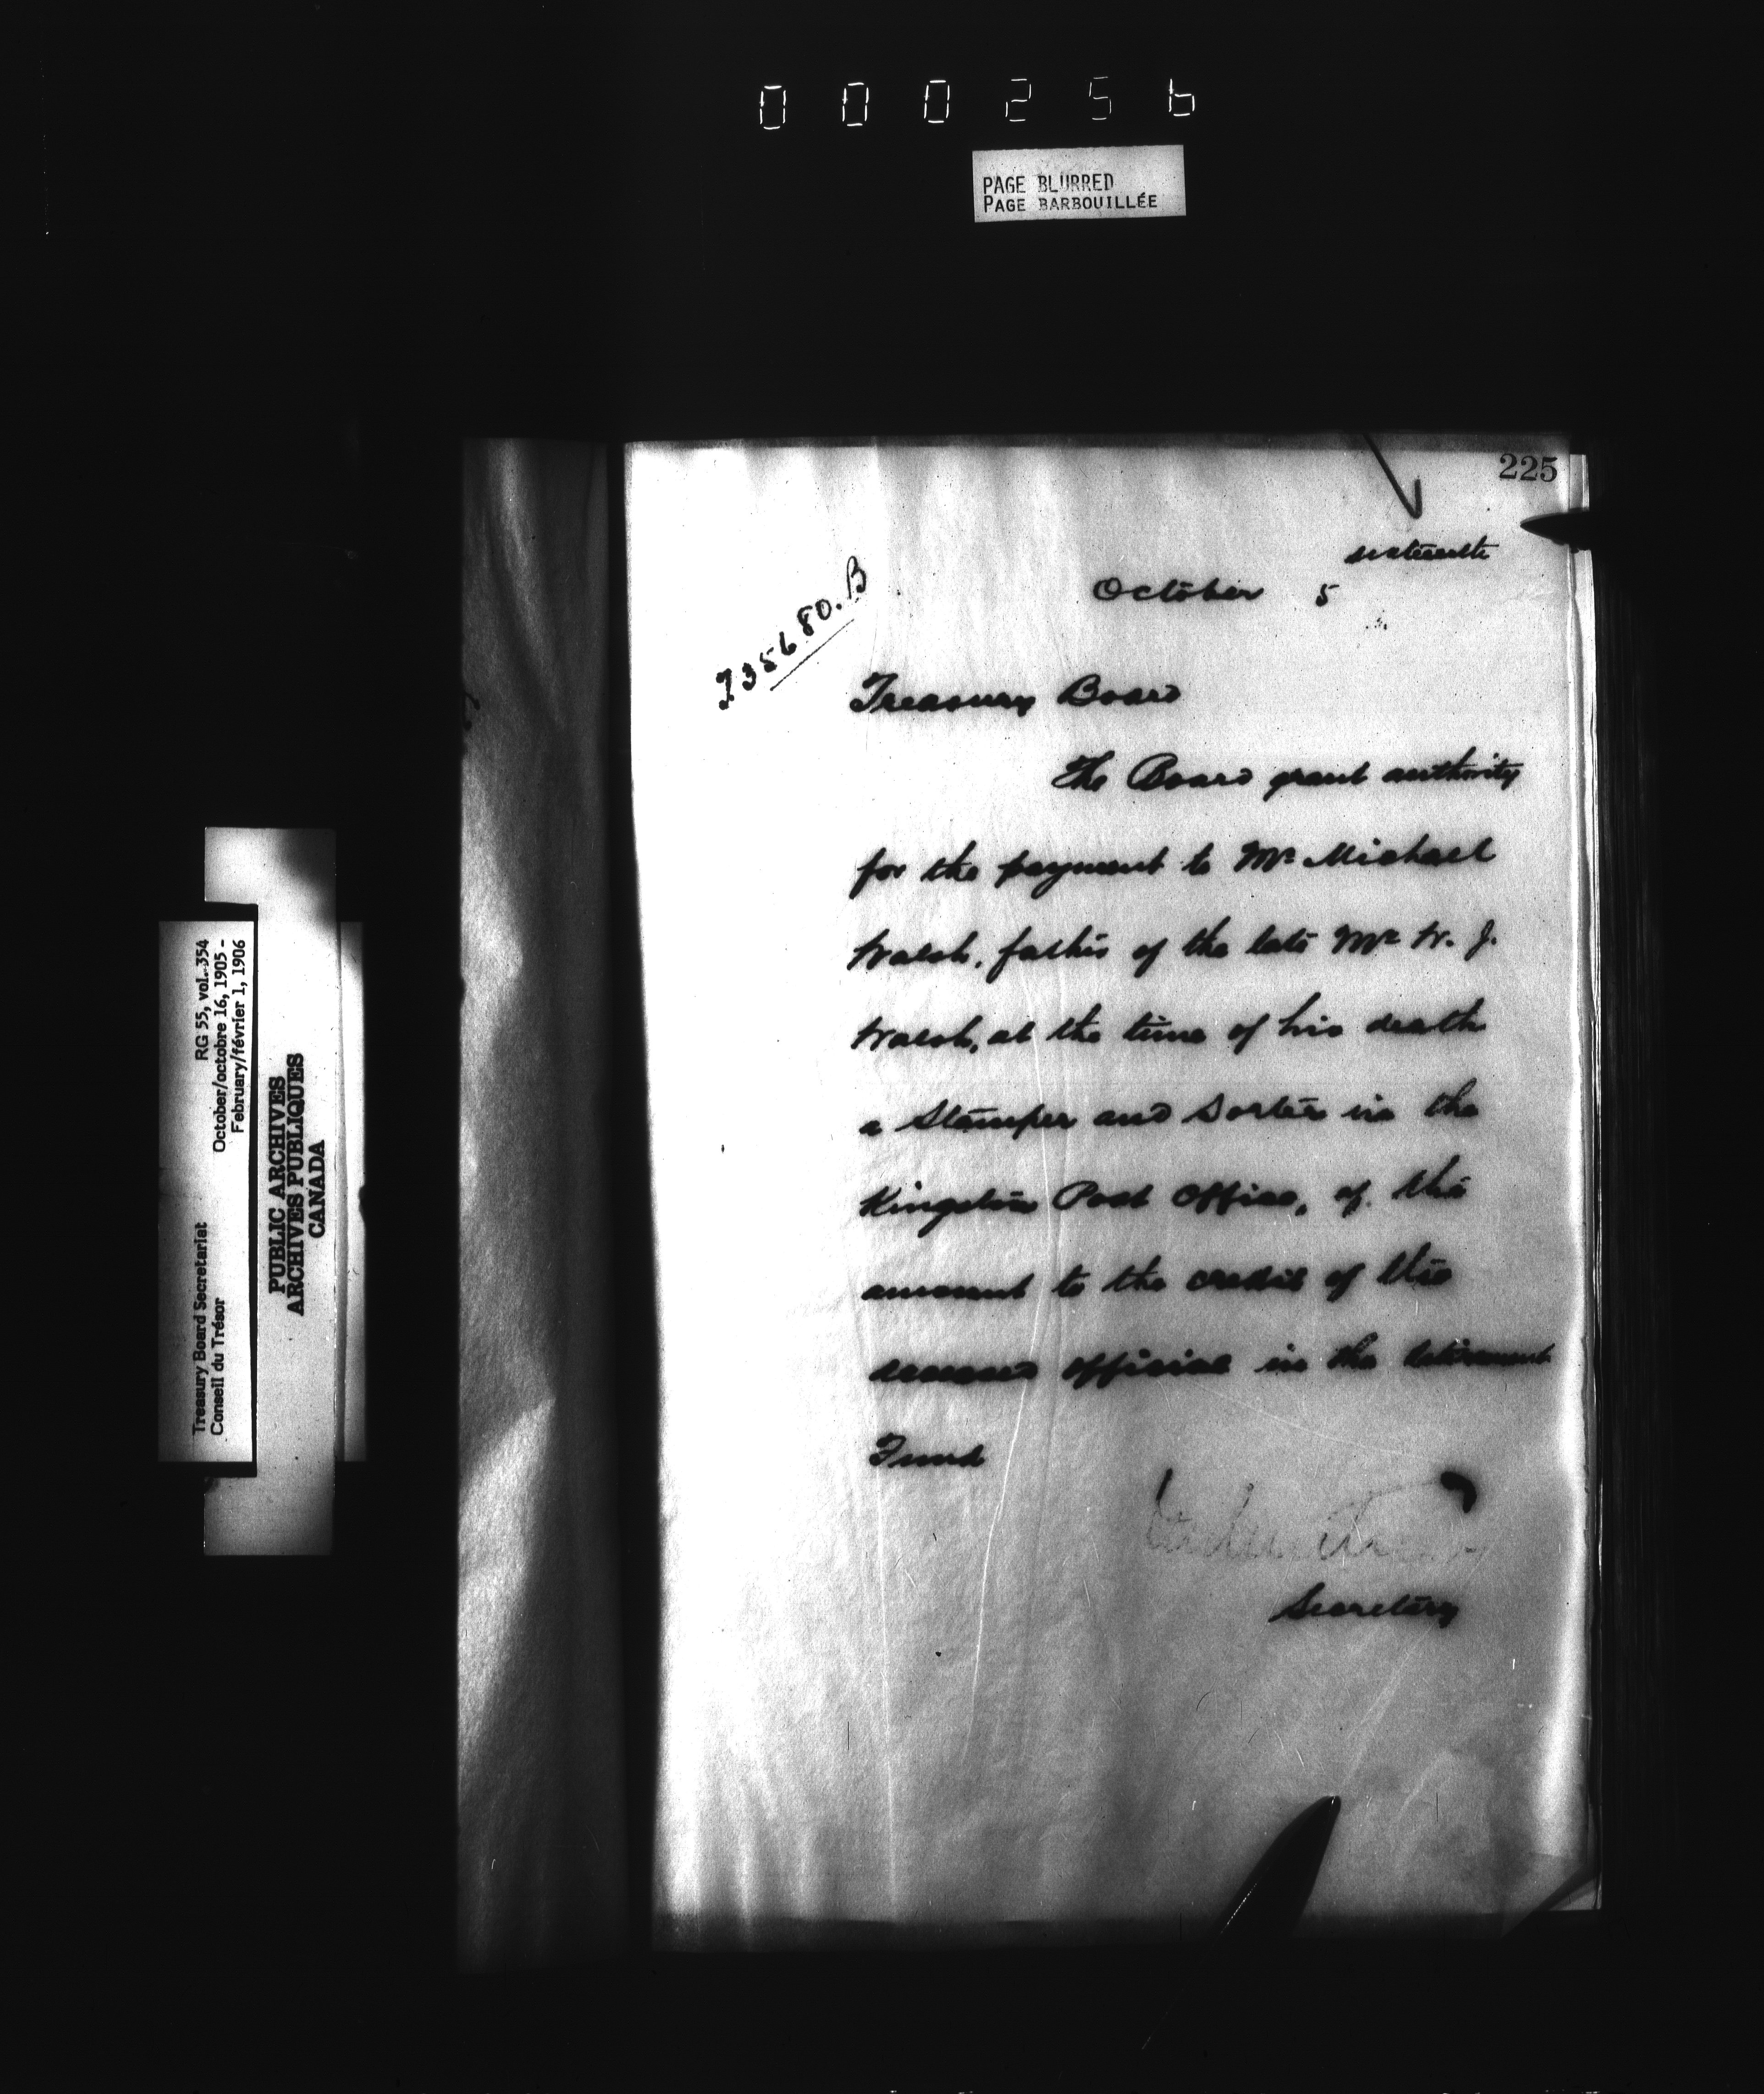 000256
PAGE BLURRED
PAGE BARBOUILLÉE
225
sixteenth
October 5
735680.B
Treasury Board
The Board grant authority
for the payment to Mr Michael
Walsh, father of the late Mr W. J.
Walsh, at the time of his death
a Stamper and Sorter in the
Kingston Post Office, of the
amount to the credit of this
deceased official in the Retirement
Fund
Secretary
Treasury Board Secretariat RG 55, vol. 354
Conseil du Trésor October/octobre 16, 1905 -
February/février 1, 1906
PUBLIC ARCHIVES
ARCHIVES PUBLIQUES
CANADA